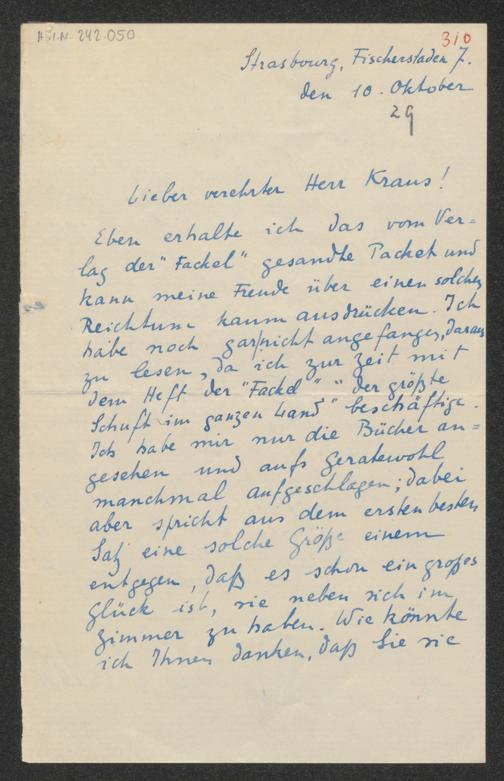 H.I.N. 242.050
310
Strasbourg, Fischerstaden 7.
den 10. Oktober
29
Lieber verehrter Herr Kraus!
Eben erhalte ich das vom Ver=
lag der "Fackel" gesandte Packet und
kann meine Freude über einen solchen
Reichtum kaum ausdrücken. Ich
habe noch gar nicht angefangen, daraus
zu lesen, da ich zur Zeit mit
dem Heft der "Fackel" "der größte
Schuft im ganzen Land" beschäftige.
Ich habe mir nur die Bücher an=
gesehen und aufs Geratewohl
manchmal aufgeschlagen; dabei
aber spricht aus dem ersten besten
Satz eine solche Größe einem
entgegen, daß es schon ein großes
Glück ist, sie neben sich im
Zimmer zu haben. Wie könnte
ich Ihnen danken, daß Sie sie